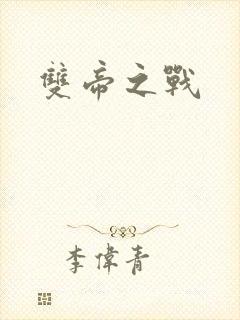 雙帝之戰
李偉青